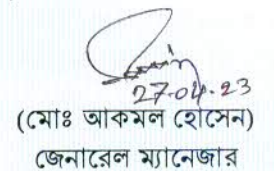 27.04.23
(মোঃ আকমল হোসেন)
জেনারেল ম্যানেজার